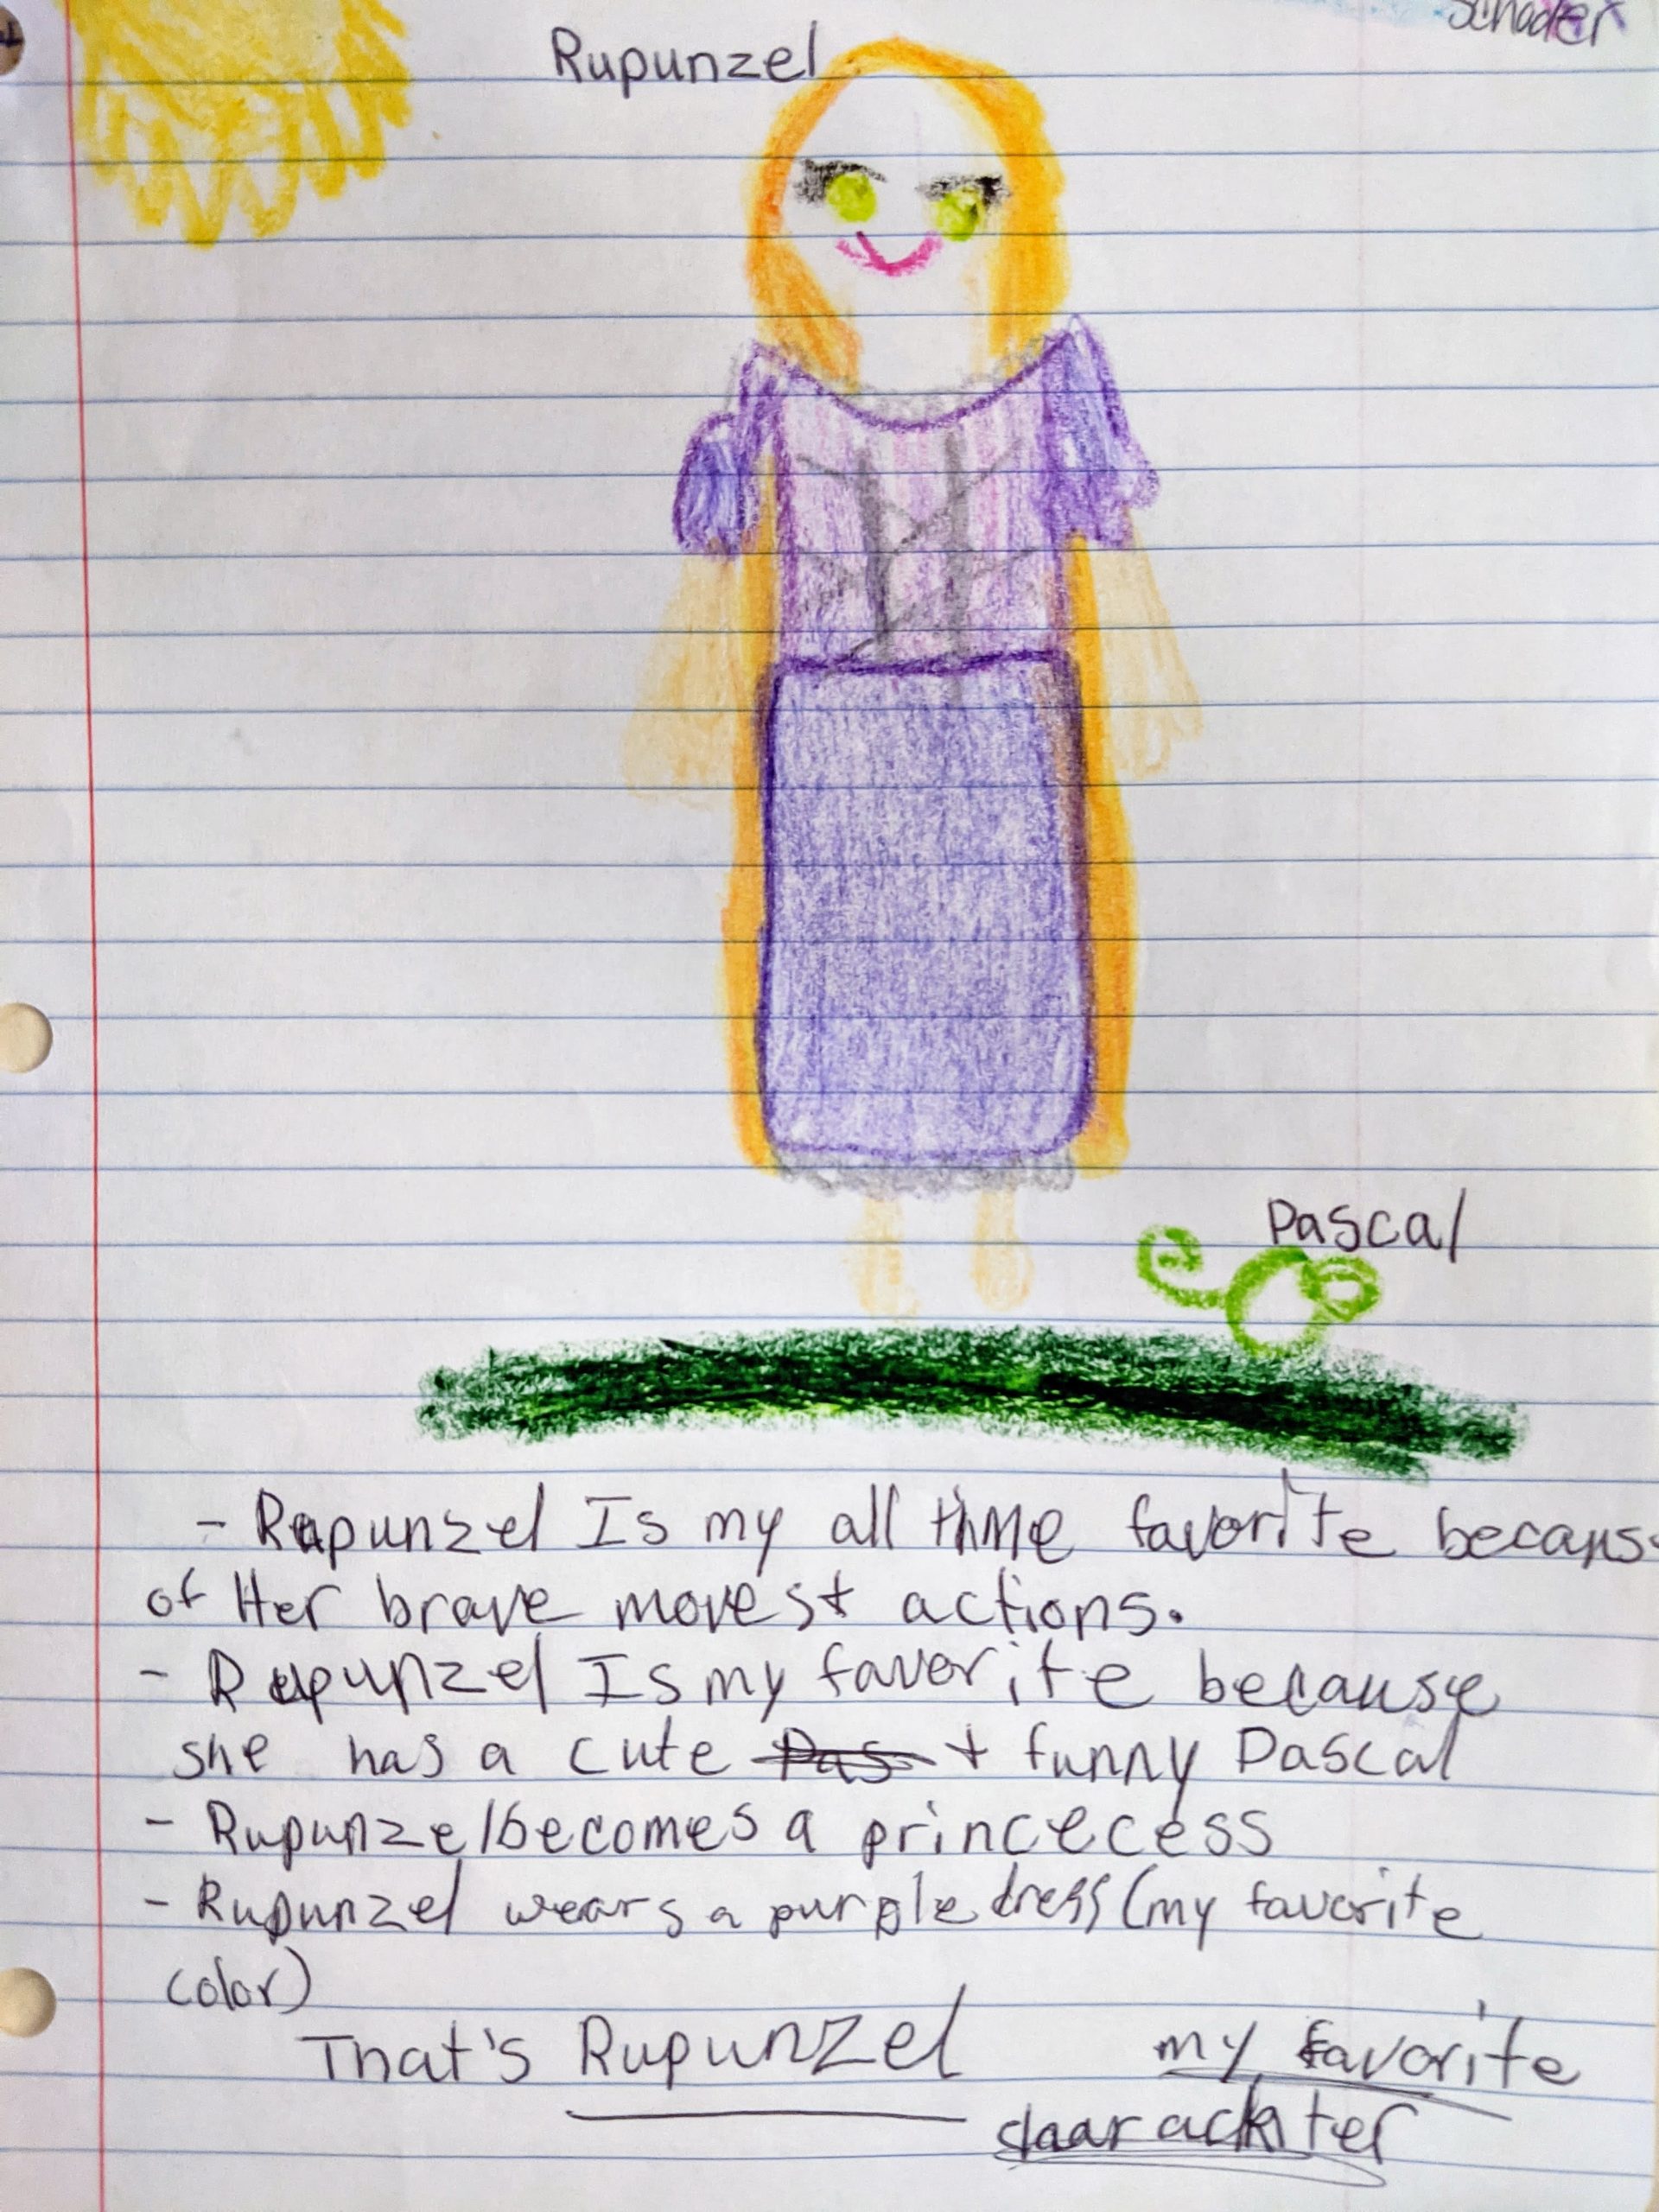 Schader
Rupunzel
Pascal
- Rapunzel Is my all time favorite becaus
of Her brave moves + actions.
- Rapunzel Is my favorite because
she has a cute Pas + funny Pascal
- Rupunzel becomes a princecess
- Rupunzel wears a purple dress (my favorite
color)
That's Rupunzel my favorite
charackter